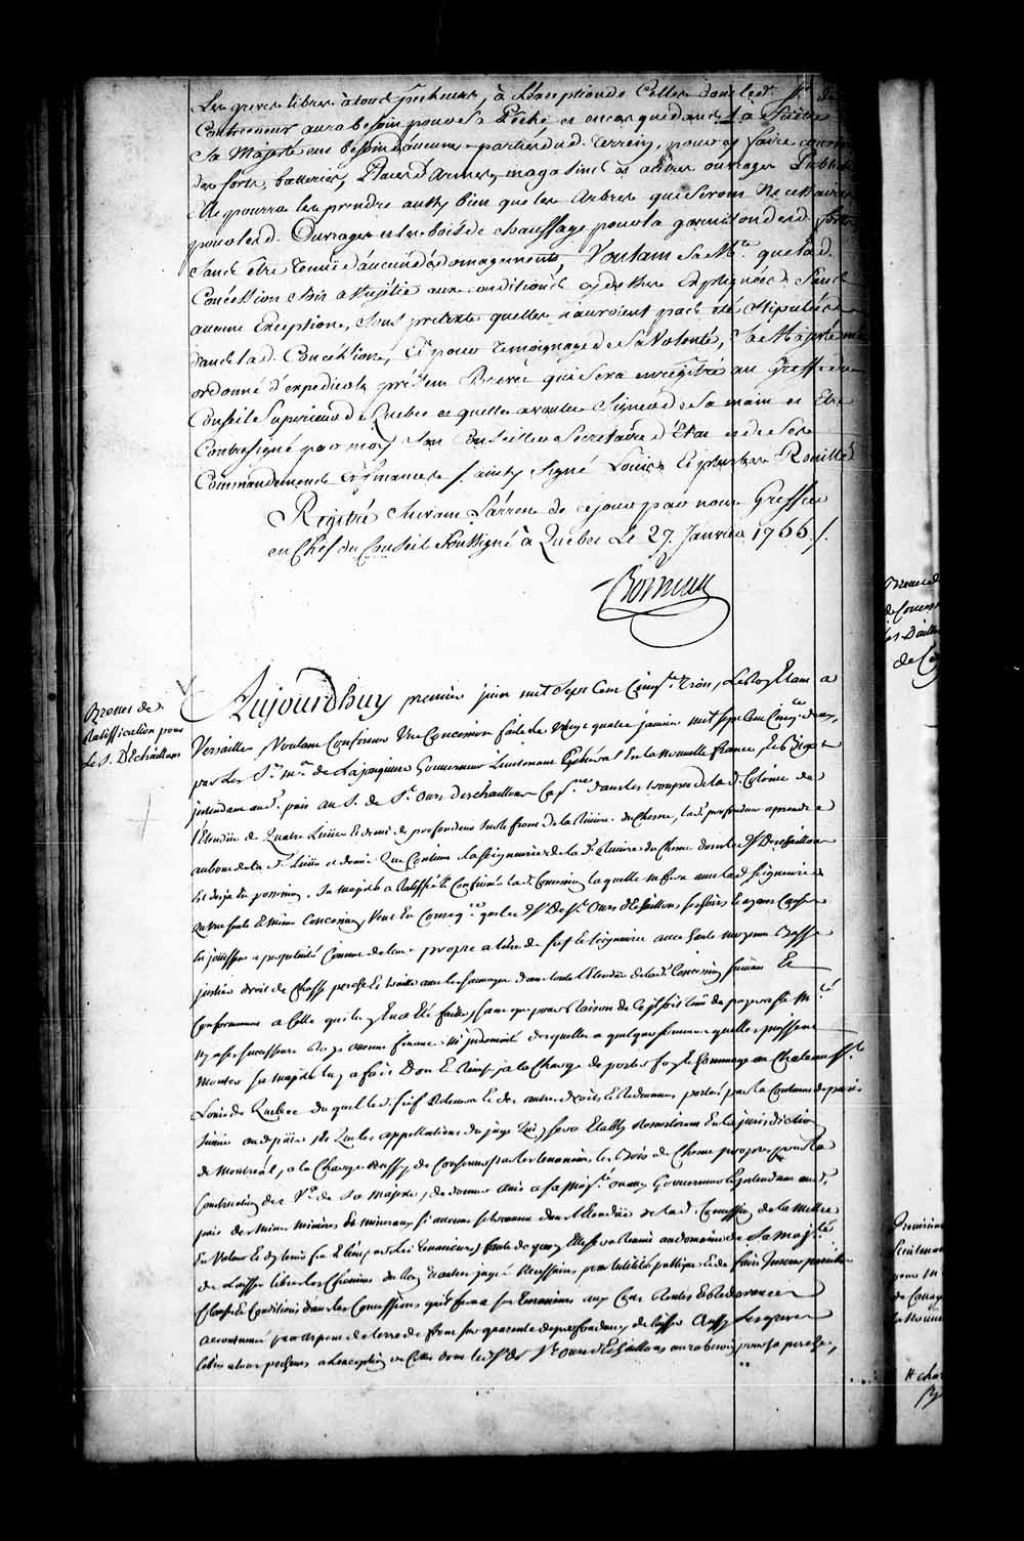 Les greves libres à tous Pecheurs, à L'éxception de Celles dont led. Sr. de
Contrecœur aura besoin pour Sa Pêche et en cas que dans La Suitte
Sa Majesté eut besoin d'aucune partie dud. Terrein, pour y faire construire
des forts, batteries, Places d'Armes, magasins et autres ouvrages Publics
Elle pourra les prendre aussy bien que les Arbres qui Seront Necessaires
pour lesd. Ouvrages et les bois de chauffage pour la garnison desd. forts
Sans être Tenüe d'aucun dédomagement, Voulant Sa Mté. que lad.
Concéssion Soit assujétie aux conditions cy dessus Expliquées Sans
aucune Exception, Sous prétexte quelles n'auroient pas été Stipulées
dans lad. Concéssion, Et pour Temoignage de Sa Volonté, Sa Majesté m'a
ordonné d'expedier le présent Brevet qui Sera enregistré au Greffe du
Conseil Superieur de Quebec et quelle a voulu Signer de Sa main et Etre
Contresigné par moy Son Conseiller Secretaire d'Etat et de Ses
Commandemens et finances /. ainsy Signé Louis Et plus bas Rouillé
Régitré Suivant L'arrest de ce jour par nous Greffier
en Chef du Conseil Soussigné à Québec Le 27. Janvier 1755 /.
Boisseau
Brevet de
Ratiffication pour
le S. D'Echaillons
Aujourdhuy premier juin mil Sept Cent Cinqte. Trois, Le Roy Etant a
Versailles Voulant Confirmer Une Concession faite le vingt quatre janvier mil sept Cent Cinqte. deux,
par Les Srs. mis. de Lajonquiere Gouverneur Lieutenant Général En la Nouvelle france, et Bigot
jntendant aud. païs au S. de St. Ours Deschaillons Capne. dans les troupes de lad. Colonie de
l'Etendüe de Quatre Lieües Et demi de profondeur sur le front de la Riviere du Chesne, lad. profondeur a prendre
au bout de la Lieüe et demie Que Contient La Seigneurie de la d. Riviere du Chesne dont le d. Sr. Deschaillons
Est deja En possession, Sa majesté a Ratiffié Et Confirmé lad. Concession laquelle ne fera avec lad. Seigneurie
qu'une seule Et même Concession, Veut En Conseqce. que led. Sr. De St. Ours d'Echaillons ses hoirs et ayans Cause
En jouissent a perpetuité Comme de leur propre a titre de fief Et Seigneurie avec haute moyenne Et Basse
justice droit de Chasse pesche Et traitte avec les Sauvages dans toute l'Etendüe de lad. Concession suivant Et
Conformement a Celle qui luy En a Eté faitte, sans que pour Raison de Ce il soit tenu de payer a Sa Mté.
ny a ses Successeurs Roys aucune finance ni jndemnité desquelles a quelque somme quelles puissent
Monter Sa majesté luy a fait Don Et Remise, a la Charge de porter foy Et hommage au Chateau St.
Louis de Quebec duquel led. fief Relevera Et des autres droits Et Redevances portés par la Coutume de paris
Suivie aud. païs, Que les appellations du juge Qui y sera Etably Ressortiront En la jurisdiction
de Montreal, a la Charge aussy de Conserver par les tenanciers les Bois de Chesne propres pour la
Construction des Vx. de Sa Majesté, de donner avis a sa Majté. ou aux Gouverneur Et jntendant aud.
païs des Mines minieres Et mineraux si aucuns se trouvent dans l'Etendüe de lad. Concession de la Mettre
En Valeur Et d'y tenir feu Et lieu par Les tenanciers, faute de quoy Elle sera Reunie au domaine de Sa Majté.
de Laisser libres les Chemins du Roy Et autres jugés Necessaires pour l'utilité publique Et de faire Inserer pareilles
Clauses Et Conditions dans les Concessions qu'il fera a ses tenanciers aux Cens Rentes Et Redevances
accoutumés par arpent de terre de front sur quarante de profondeur, de Laisser Aussy Les greves
libres a tous pecheurs a L'exception de Celles dont led. Sr. de St. Ours d'Echaillons aura besoin pour sa pesche,